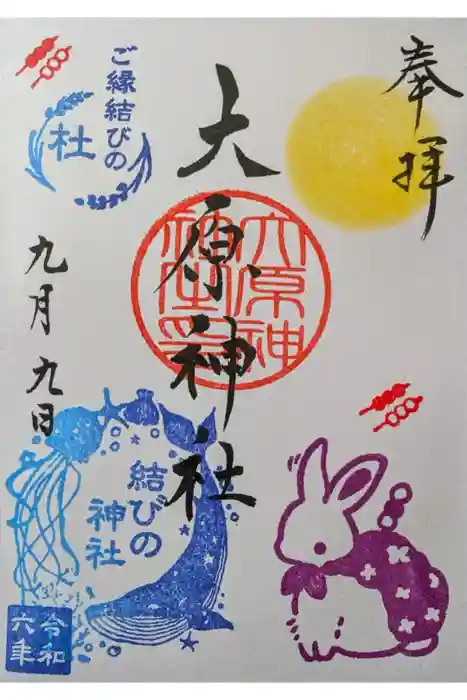 奉拝
大原神社
九月九日
ご縁結びの
杜
大原神社之印
結びの
神社
令和
六年